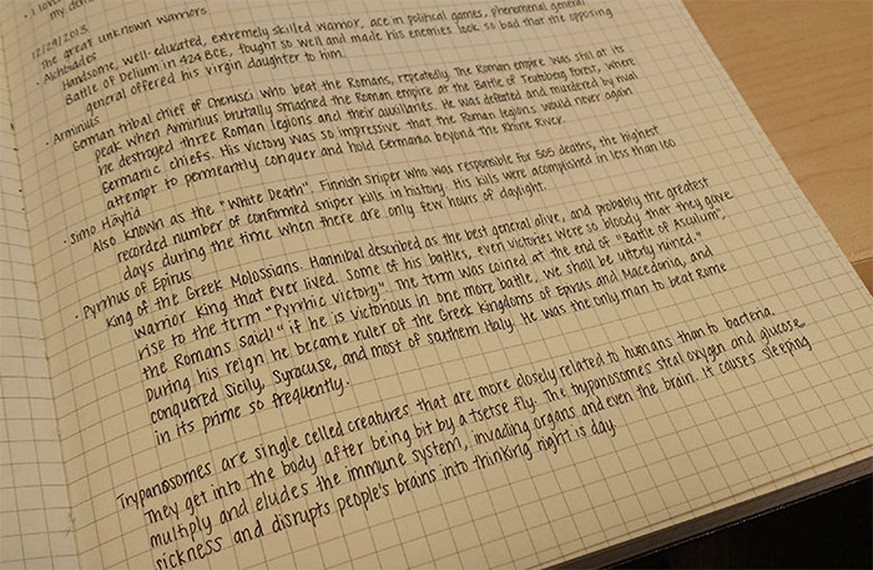 · i love
my
12/29/2013
the great unknown warriors
· Alchbiades
Handsome, well-educated, extremely skilled warrior, ace in political games, phenomenal general
Battle of Delium in 424 BCE, fought so well and made his enemies look so bad that the opposing
general offered his virgin daughter to him.
· Arminius
German tribal chief of Cherusci who beat the Romans, repeatedly. The Roman empire was still at its
peak when Arminius brutally smashed the Roman empire at the Battle of Teutoberg Forest, where
he destroyed three Roman legions and their auxiliaries. He was defeated and murdered by rival
Germanic chiefs. His victory was so impressive that the Roman legions would never again
attempt to permeantly conquer and hold Germania beyond the Rhine River.
· Simo Häyhä
Also known as the "White Death". Finnish sniper who was responsible for 505 deaths, the highest
recorded number of confirmed sniper kills in history. His kills were acomplished in less than 100
days during the time when there are only few hours of daylight.
· Pyrrhus of Epirus
King of the Greek Molossians. Hannibal described as the best general alive, and probably the greatest
warrior King that ever lived. Some of his battles, even victories were so bloody that they gave
rise to the term "Pyrrhic victory". The term was coined at the end of "Battle of Asculum",
the Romans said! "if he is victorious in one more battle, we shall be utterly ruined."
During his reign he became ruler of the Greek Kingdoms of Epirus and Macedonia, and
conquered Sicily, Syracuse, and most of southern Italy. He was the only man to beat Rome
in its prime so frequently.
Trypanosomes are single celled creatures that are more closely related to humans than to bacteria.
They get into the body after being bit by a tsetse fly. The trypanosomes steal oxygen and glucose
multiply and eludes the immune system, invading organs and even the brain. It causes sleeping
sickness and disrupts people's brains into thinking night is day.